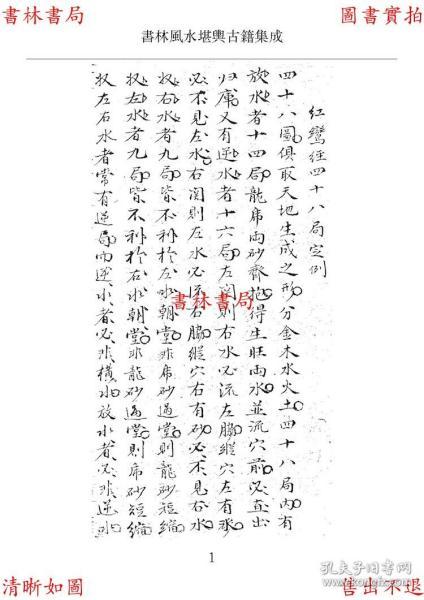 書林書局
圖書實拍
書林風水堪輿古籍集成
紅鸞經四十八局定例
四十八圖俱取天地生成之形分金木水火土四十八局內有
放水者十四局龍虎兩砂齊抱得生旺兩水並流穴前必直出
歸庫又有逆水者十六局左関則右水必流左腸縱穴左有砂
必不見左水右関則左水必流右腸縱穴右有砂必不見右水
収右水者九局皆不利於左水朝堂非虎砂過堂則龍砂短縮
収左水者九局皆不利於右水朝堂非龍砂過堂則虎砂短縮
収左右水者常有逆局而逆水者必非橫水放水者必非逆水
書林書局
1
孔夫子旧书网
清晰如圖
售出不退